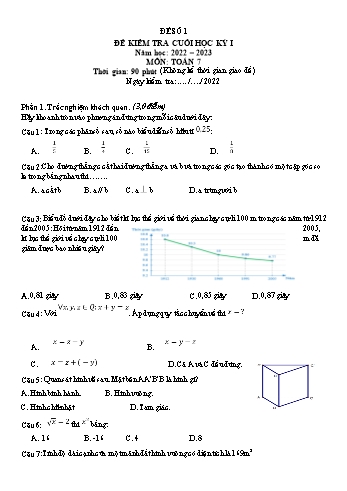 ĐỀ SỐ 1
ĐỀ KIỂM TRA CUỐI HỌC KỲ I
Năm học: 2022 – 2023
MÔN: TOÁN 7
Thời gian: 90 phút (Không kể thời gian giao đề)
Ngày kiểm tra:…./…./2022
Phần 1. Trắc nghiệm khách quan. (3,0 điểm)
Hãy khoanh tròn vào phương án đúng trong mỗi câu dưới đây:
Câu 1: Trong các phân số sau, số nào biểu diễn số hữu tỉ 0.25:
A. B. 1/4 C. D.
Câu 2: Cho đường thẳng c cắt hai đường thẳng a và b và trong các góc tạo thành có một cặp góc so
le trong bằng nhau thì…….
A. a cắt b B. a // b C. a ⊥ b D. a trùng với b
Câu 3: Biểu đồ dưới đây cho biết kỉ lục thế giới về thời gian chạy cự li 100 m trong các năm từ 1912
đến 2005: Hỏi từ năm 1912 đến 2005,
kỉ lục thế giới về chạy cự li 100 m đã
giảm được bao nhiêu giây?
A. 0,81 giây B. 0,83 giây C. 0,85 giây D. 0,87 giây
Câu 4: Với ∀x, y, z ∈ Q: x + y = z. Áp dụng quy tắc chuyển vế thì x = ?
A. x = z − y B. x = y − z
C. x = z + (− y) D. Cả A và C đều đúng.
Câu 5: Quan sát hình vẽ sau. Mặt bên AA'B'B là hình gì?
A. Hình bình hành. B. Hình vuông.
C. Hình chữ nhật D. Tam giác.
Câu 6: √x = 2 thì x² bằng:
A. 16 B. -16 C. 4 D. 8
Câu 7: Tính độ dài cạnh của một mảnh đất hình vuông có diện tích là 169m²